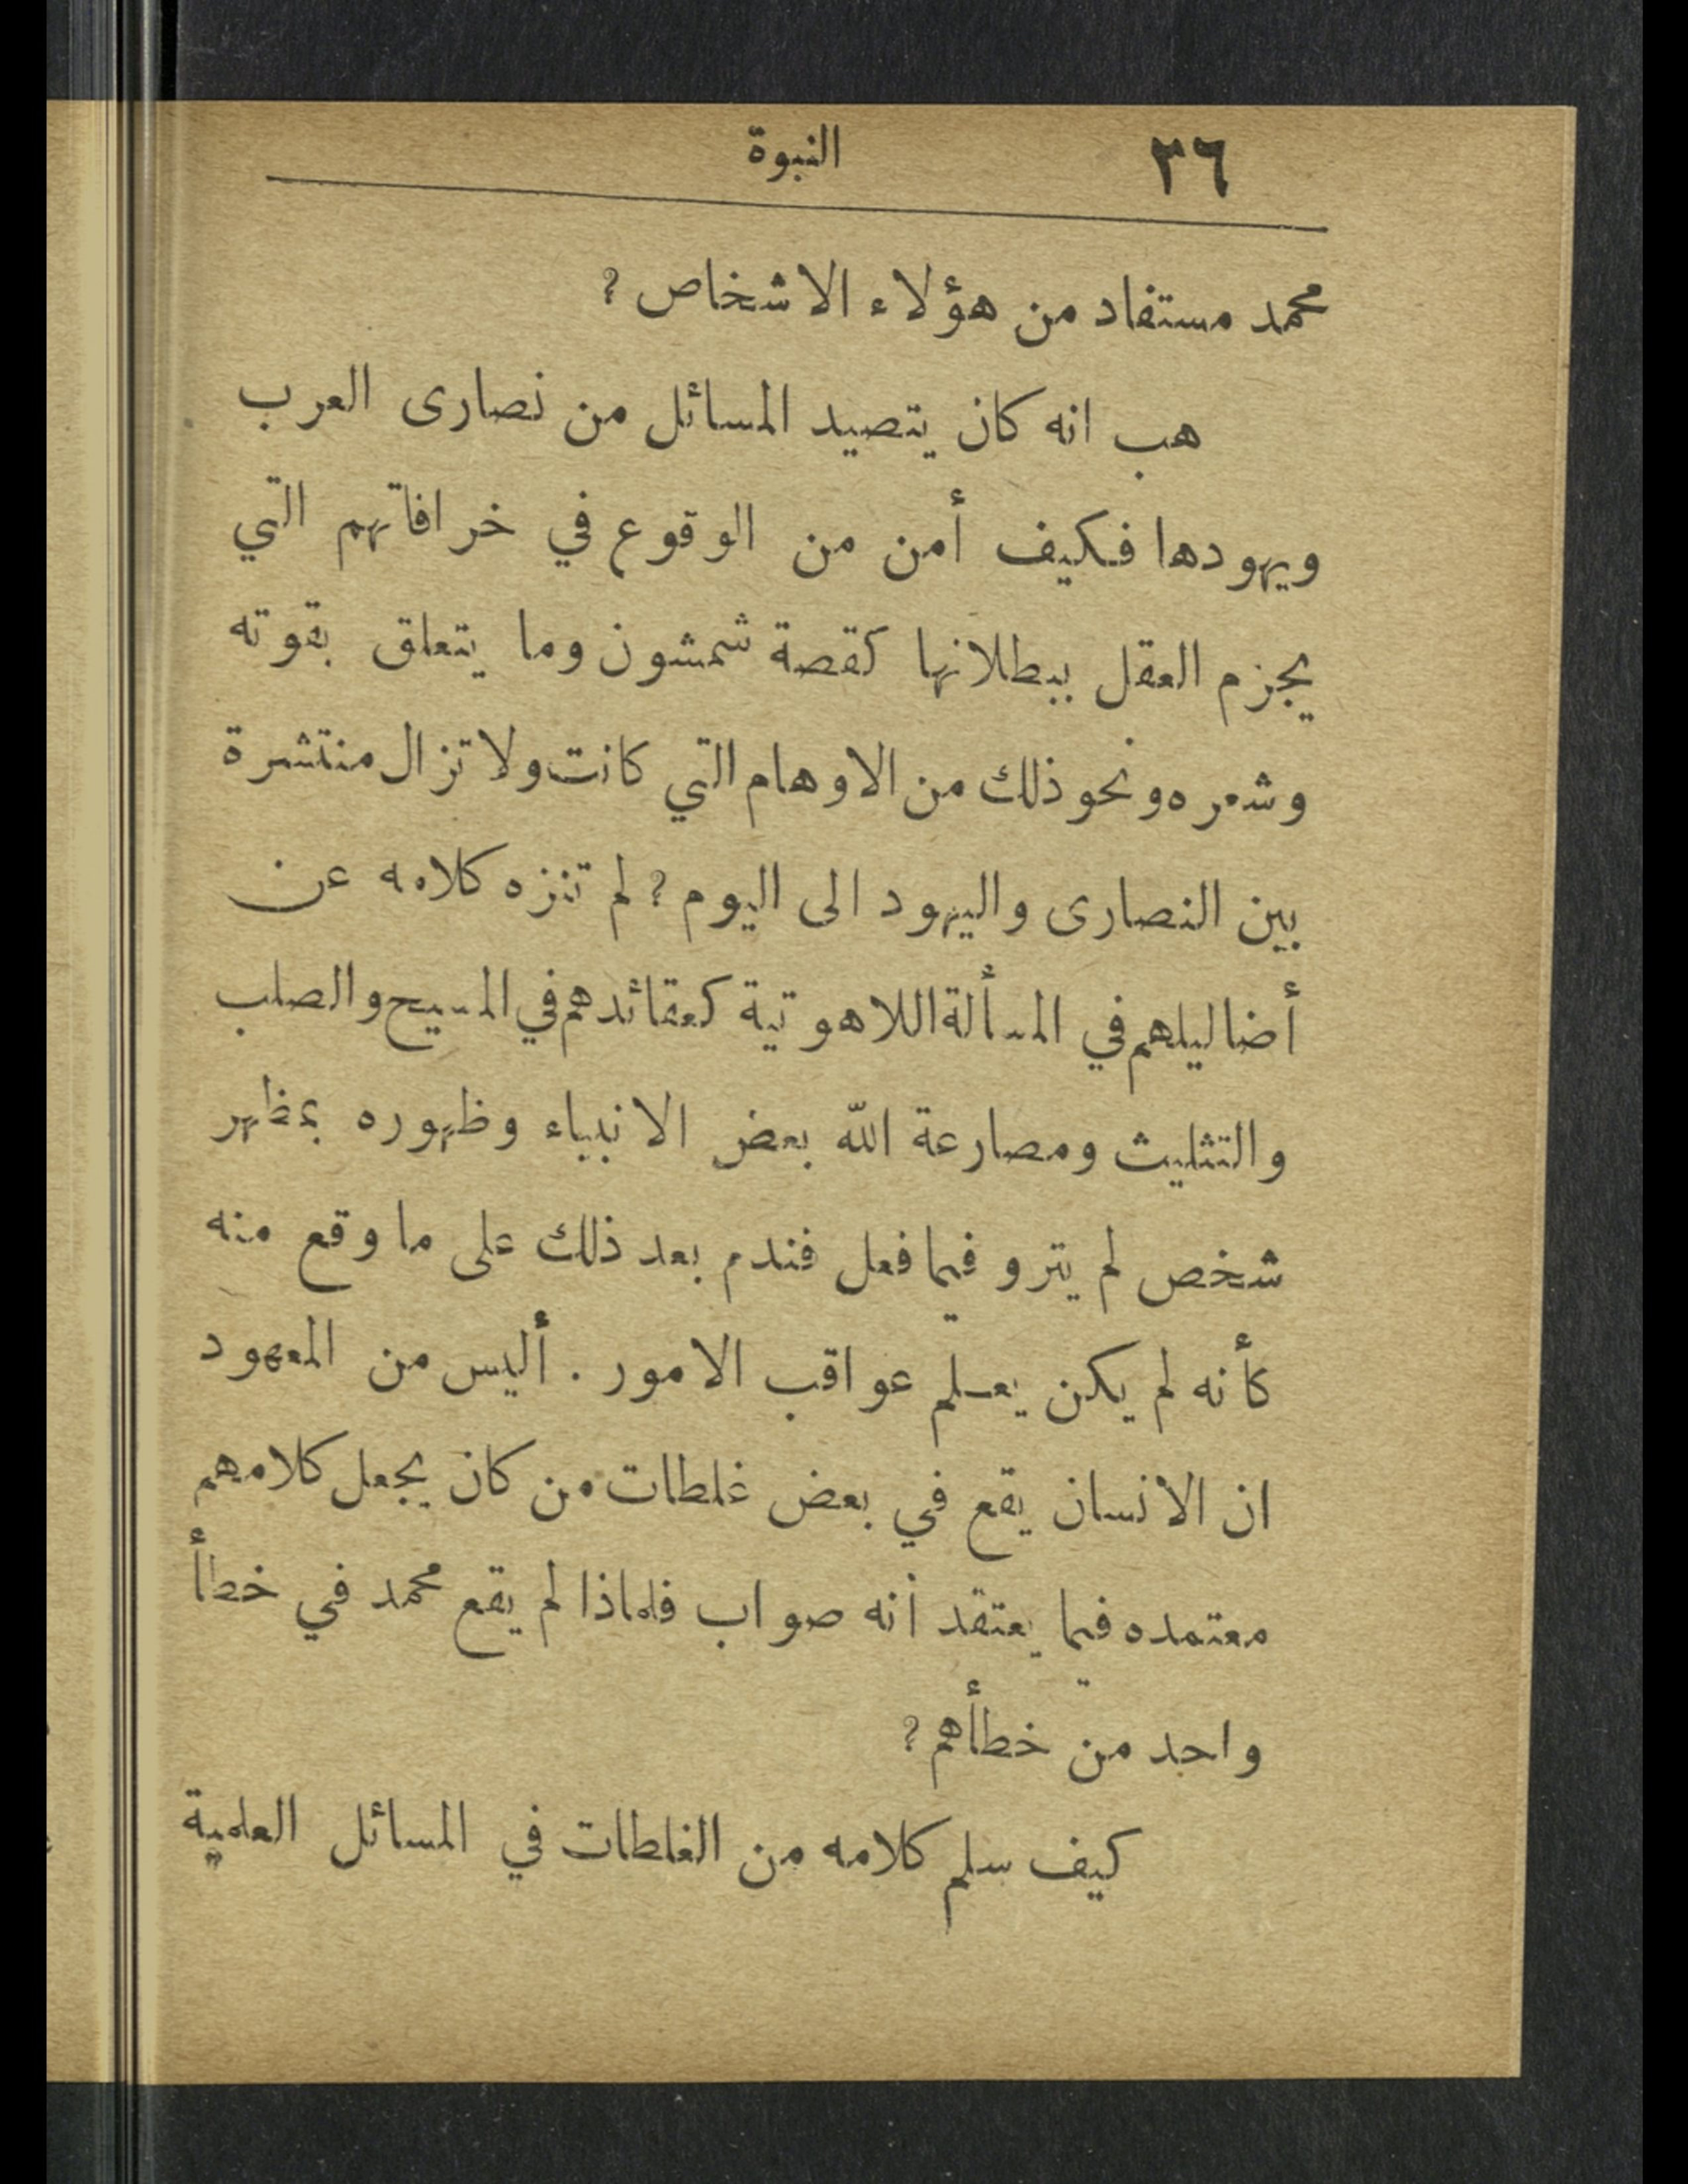 ٣٦ النبوة
محمد مستفاد من هؤلاء الاشخاص ؟
هب انه كان يتصيد المسائل من نصارى العرب
ويهودها فكيف أمن من الوقوع في خرافاتهم التي
يجزم العقل ببطلانها كقصة شمشون وما يتعلق بقوته
وشعره ونحو ذلك من الاوهام التي كانت ولا تزال منتشرة
بين النصارى واليهود الى اليوم ؟ لم تنزه كلامه عن
أضاليلهم في المسألة اللاهوتية كعقائدهم في المسيح والصلب
والتثليث ومصارعة الله بعض الانبياء وظهوره بمظهر
شخص لم يترو فيما فعل فندم بعد ذلك على ما وقع منه
كأنه لم يكن يعلم عواقب الامور . أليس من المعهود
ان الانسان يقع في بعض غلطات من كان يجعل كلامهم
معتمده فيما يعتقد أنه صواب فلماذا لم يقع محمد في خطأ
واحد من خطأهم ؟
كيف سلم كلامه من الغلطات في المسائل العلمية